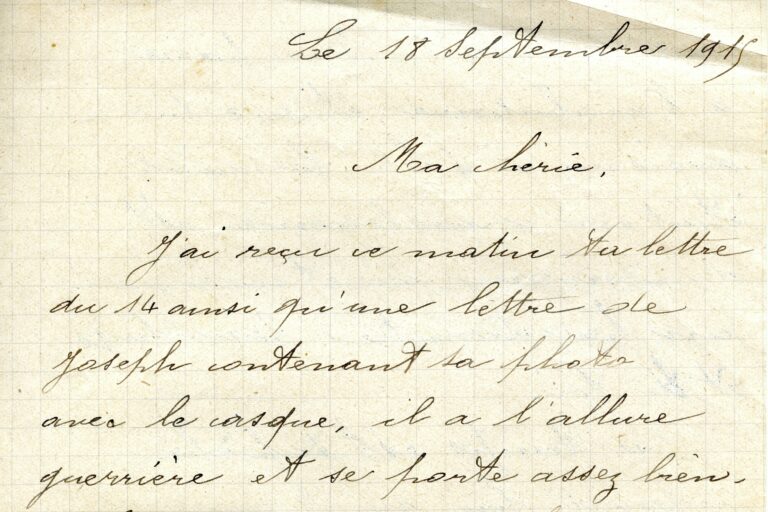 Le 18 Septembre 1915
Ma chérie,
J'ai reçu ce matin ta lettre
du 14 ainsi qu'une lettre de
Joseph contenant sa photo
avec le casque, il a l'allure
guerrière et se porte assez bien.